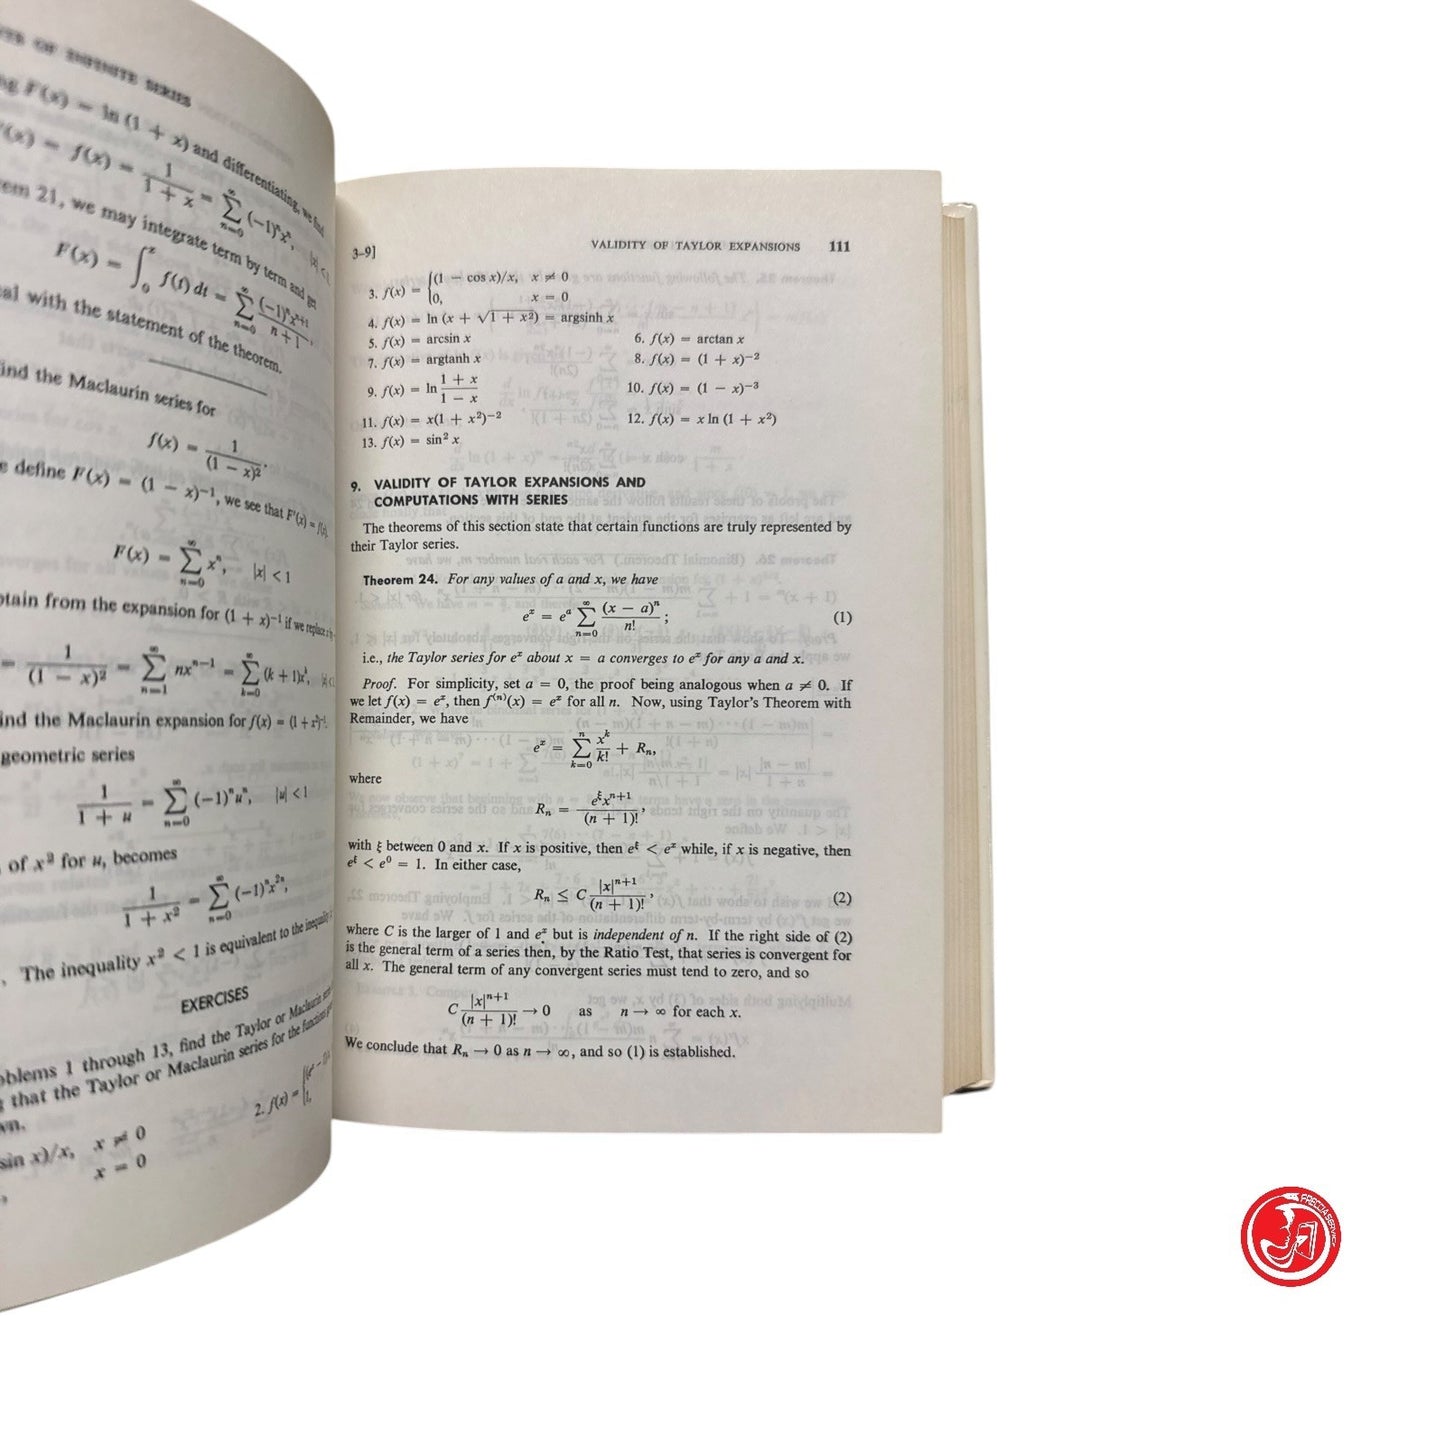 OF INFINITE SERIES
F(x) = ln (1 + x) and differentiating, we find
(x) = f(x) = 1/(1 + x) = ∑_{n=0}^{∞} (−1)ⁿxⁿ,
21, we may integrate term by term and get
F(x) = ∫₀ˣ f(t) dt = ∑_{n=0}^{∞} (−1)ⁿxⁿ⁺¹/(n + 1),
with the statement of the theorem.
ind the Maclaurin series for
f(x) = 1/(1 − x)².
define F(x) = (1 − x)⁻¹, we see that F′(x) = f(x).
F(x) = ∑_{n=0}^{∞} xⁿ, |x| < 1
from the expansion for (1 + x)⁻¹ if we replace
= 1/(1 − x)² = ∑_{n=1}^{∞} nxⁿ⁻¹ = ∑_{k=0}^{∞} (k + 1)xᵏ,
ind the Maclaurin expansion for f(x) = (1 + x²)⁻¹.
geometric series
1/(1 + u) = ∑_{n=0}^{∞} (−1)ⁿuⁿ, |u| < 1
of x² for u, becomes
1/(1 + x²) = ∑_{n=0}^{∞} (−1)ⁿx²ⁿ,
The inequality x² < 1 is equivalent to the inequality
EXERCISES
oblems 1 through 13, find the Taylor or Maclaurin
that the Taylor or Maclaurin series for the functions
wn.
2. f(x) =
sin x)/x, x ≠ 0
x = 0
3–9] VALIDITY OF TAYLOR EXPANSIONS 111
3. f(x) = {(1 − cos x)/x, x ≠ 0
0, x = 0
4. f(x) = ln (x + √(1 + x²)) = argsinh x
5. f(x) = arcsin x 6. f(x) = arctan x
7. f(x) = argtanh x 8. f(x) = (1 + x)⁻²
9. f(x) = ln (1 + x)/(1 − x) 10. f(x) = (1 − x)⁻³
11. f(x) = x(1 + x²)⁻² 12. f(x) = x ln (1 + x²)
13. f(x) = sin² x
9. VALIDITY OF TAYLOR EXPANSIONS AND
COMPUTATIONS WITH SERIES
The theorems of this section state that certain functions are truly represented by
their Taylor series.
Theorem 24. For any values of a and x, we have
eˣ = eᵃ ∑_{n=0}^{∞} (x − a)ⁿ/n! ; (1)
i.e., the Taylor series for eˣ about x = a converges to eˣ for any a and x.
Proof. For simplicity, set a = 0, the proof being analogous when a ≠ 0. If
we let f(x) = eˣ, then f⁽ⁿ⁾(x) = eˣ for all n. Now, using Taylor's Theorem with
Remainder, we have
eˣ = ∑_{k=0}^{n} xᵏ/k! + Rₙ,
where
Rₙ = e^ξ xⁿ⁺¹/(n + 1)!,
with ξ between 0 and x. If x is positive, then e^ξ < eˣ while, if x is negative, then
e^ξ < e⁰ = 1. In either case,
Rₙ ≤ C |x|ⁿ⁺¹/(n + 1)!, (2)
where C is the larger of 1 and eˣ but is independent of n. If the right side of (2)
is the general term of a series then, by the Ratio Test, that series is convergent for
all x. The general term of any convergent series must tend to zero, and so
C |x|ⁿ⁺¹/(n + 1)! → 0 as n → ∞ for each x.
We conclude that Rₙ → 0 as n → ∞, and so (1) is established.
FRECCIASERVICE